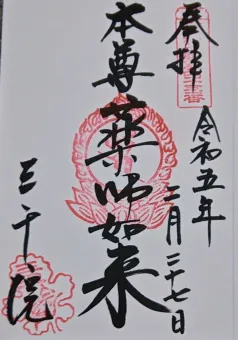 奉拝
令和五年
二月二十七日
本尊薬師如来
三千院